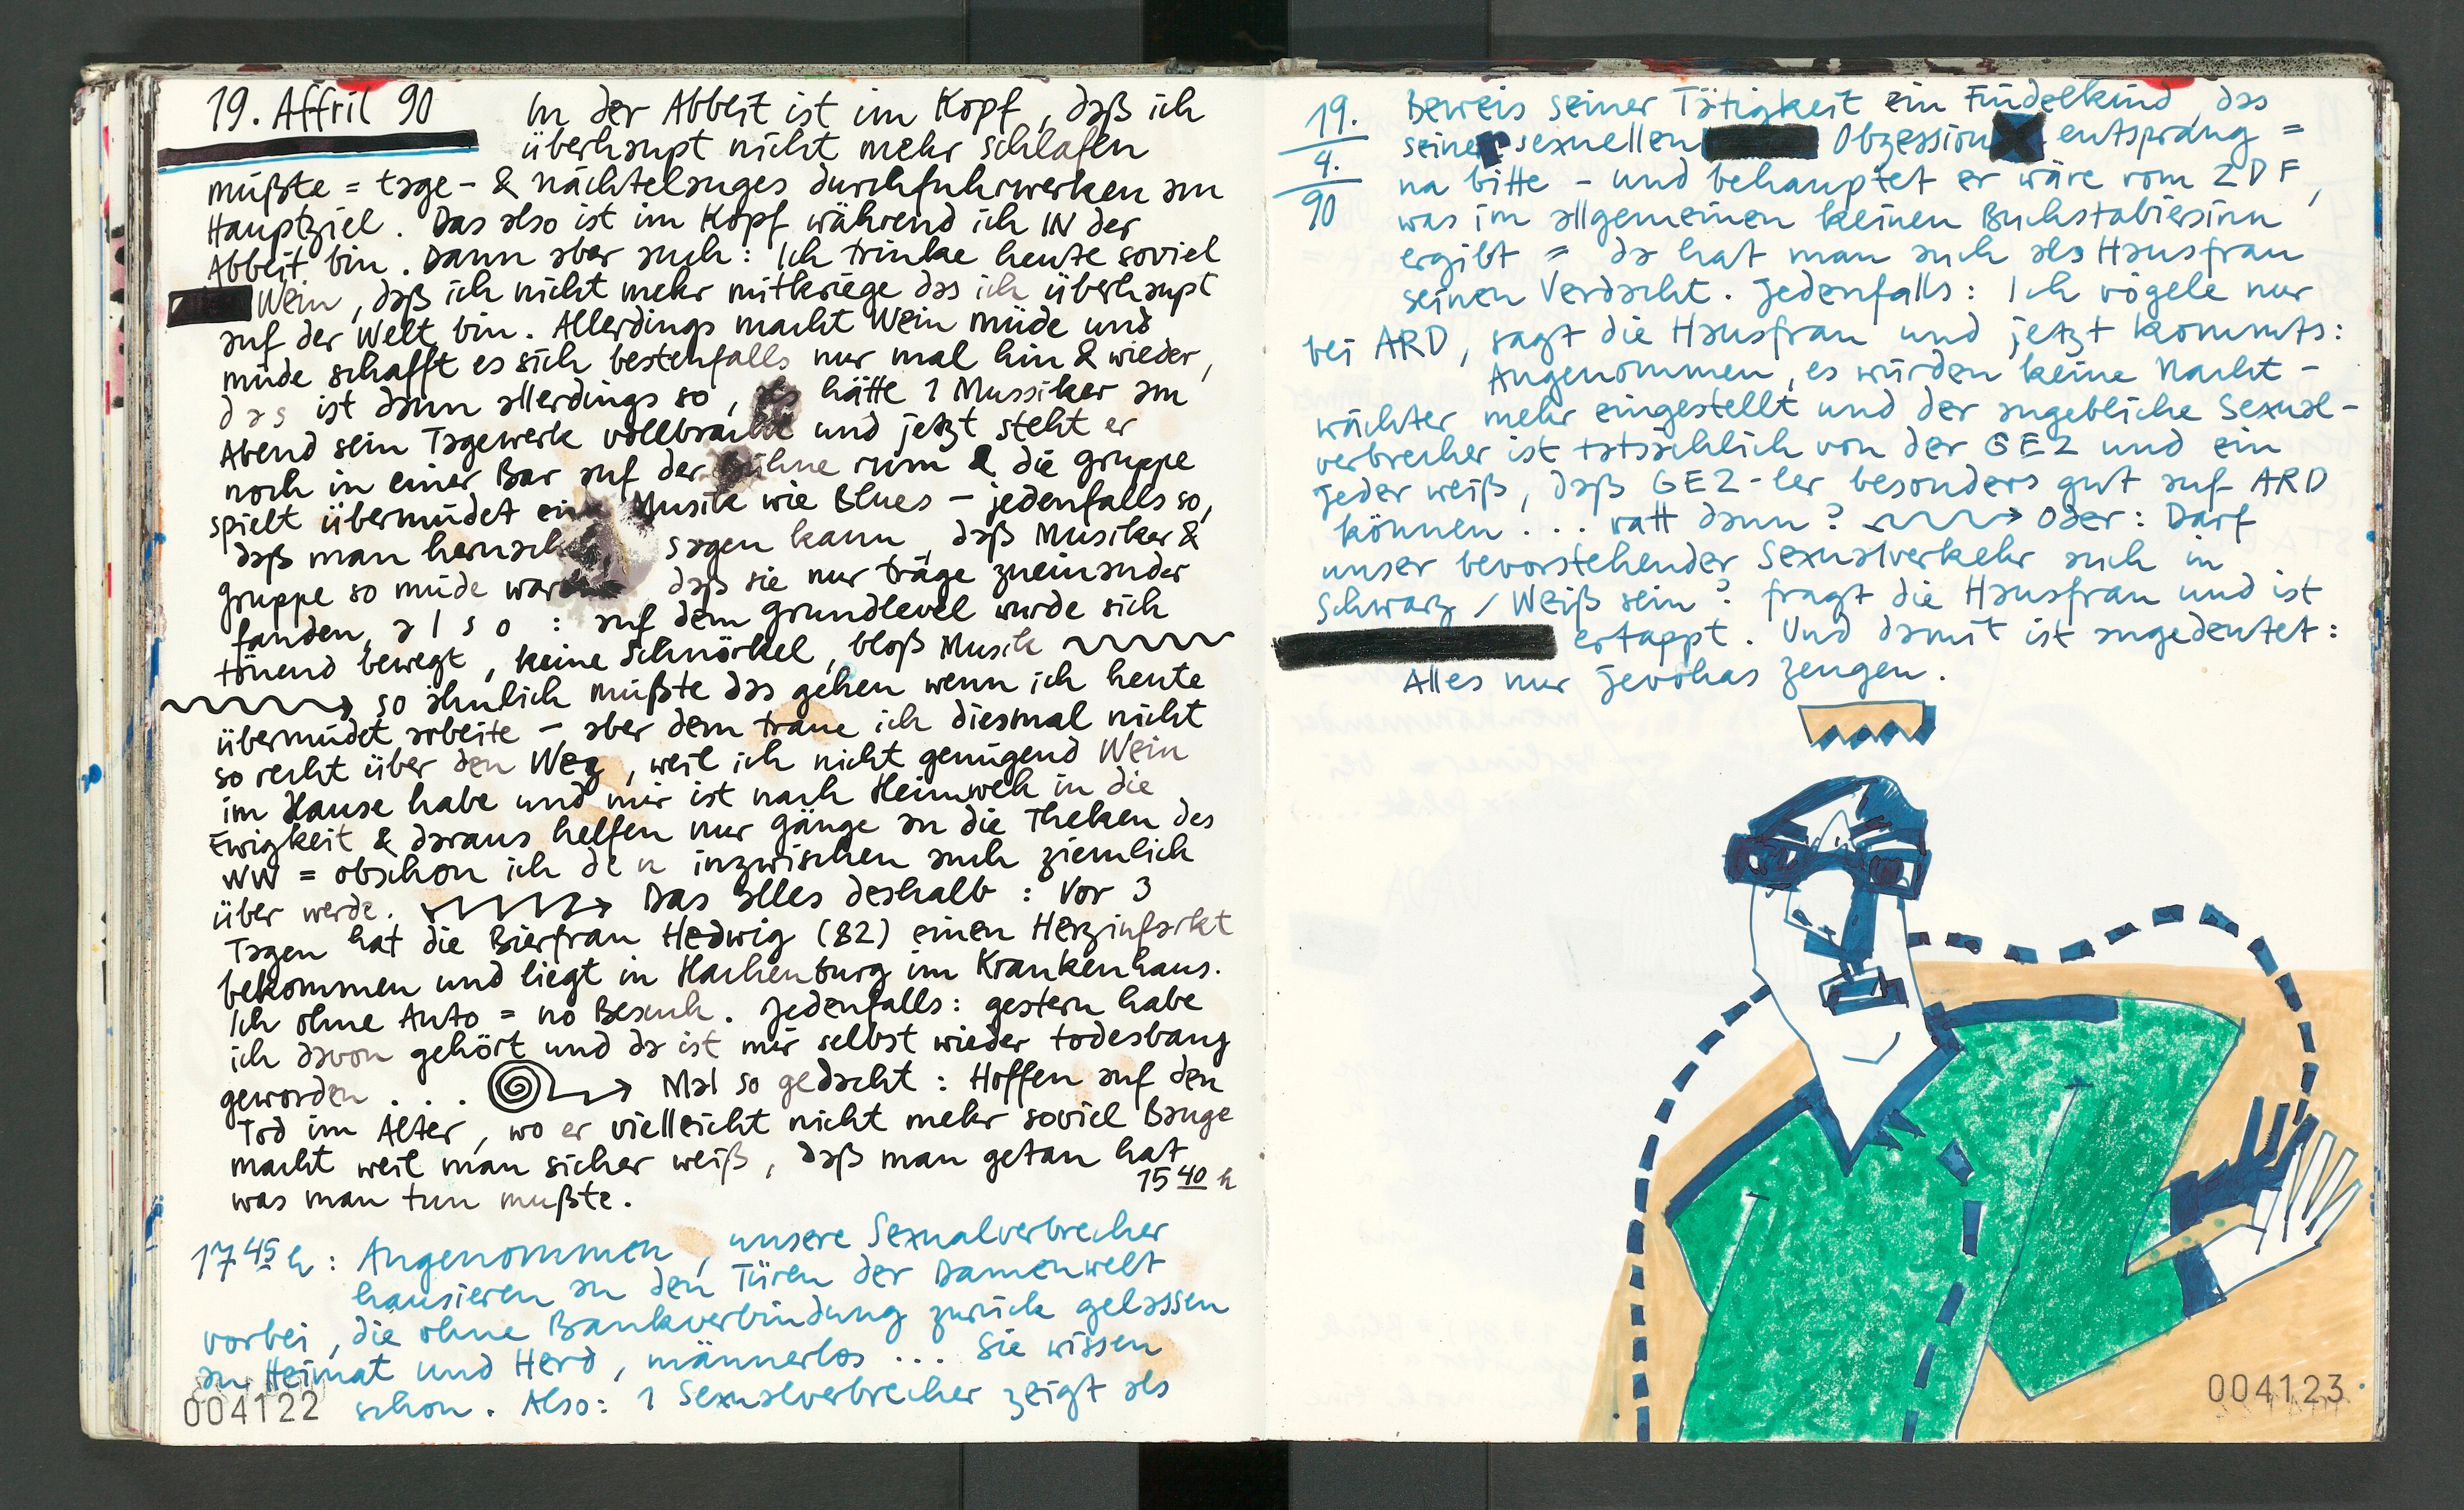 19. Affril 90 In der Abbeit ist im Kopf, daß ich
überhaupt nicht mehr schlafen
müßte = tage- & nächtelanges durchfuhrwerken am
Hauptziel. Das also ist im Kopf während ich IN der
Abbeit bin. Dann aber auch: Ich trinke heute soviel
Wein, daß ich nicht mehr mitkriege das ich überhaupt
auf der Welt bin. Allerdings macht Wein müde und
müde schafft es sich bestenfalls nur mal hin & wieder,
das ist dann allerdings so, als hätte 1 Mussiker am
Abend sein Tagewerk vollbracht und jetzt steht er
noch in einer Bar auf der Bühne rum & die gruppe
spielt übermüdet eine Musik wie Blues – jedenfalls so,
daß man hernach sagen kann, daß Musiker &
gruppe so müde waren daß sie nur träge zueinander
fanden, also: auf dem grundlevel wurde sich
tönend bewegt, keine Schnörkel, bloß Musik
so ähnlich müßte das gehen wenn ich heute
übermüdet arbeite – aber dem traue ich diesmal nicht
so recht über den Weg, weil ich nicht genügend Wein
im Hause habe und mir ist nach Heimweh in die
Ewigkeit & daraus helfen nur gänge an die Theken des
WW = obschon ich den inzwischen auch ziemlich
über werde. Das alles deshalb: Vor 3
Tagen hat die Bierfrau Hedwig (82) einen Herzinfarkt
bekommen und liegt in Hachenburg im Krankenhaus.
Ich ohne Auto = no Besuch. Jedenfalls: gestern habe
ich davon gehört und da ist mir selbst wieder todesbang
geworden . . . Mal so gedacht: Hoffen auf den
Tod im Alter, wo er vielleicht nicht mehr soviel Bange
macht weil man sicher weiß, daß man getan hat
was man tun mußte. 15 40 h
17 45 h: Angenommen, unsere Sexualverbrecher
hausieren an den Türen der Damenwelt
vorbei, die ohne Bankverbindung zurück gelassen
an Heimat und Herd, männerlos ... Sie wissen
schon. Also: 1 Sexualverbrecher zeigt als
004122
19.
4.
90
Beweis seiner Tätigkeit ein Findelkind, das
seiner sexuellen Obzession entsprang =
na bitte – und behauptet er wäre vom ZDF,
was im allgemeinen keinen Buchstabiersinn
ergibt = da hat man auch als Hausfrau
seinen Verdacht. Jedenfalls: Ich vögele nur
bei ARD, sagt die Hausfrau und jetzt kommts:
Angenommen, es würden keine Nacht-
wächter mehr eingestellt und der angebliche Sexual-
verbrecher ist tatsächlich von der GEZ und ein
jeder weiß, daß GEZ-ler besonders gut auf ARD
können . . . watt dann? Oder: Darf
unser bevorstehender Sexualverkehr auch in
Schwarz / Weiß sein? fragt die Hausfrau und ist
ertappt. Und damit ist angedeutet:
Alles nur Jevohas zeugen.
004123